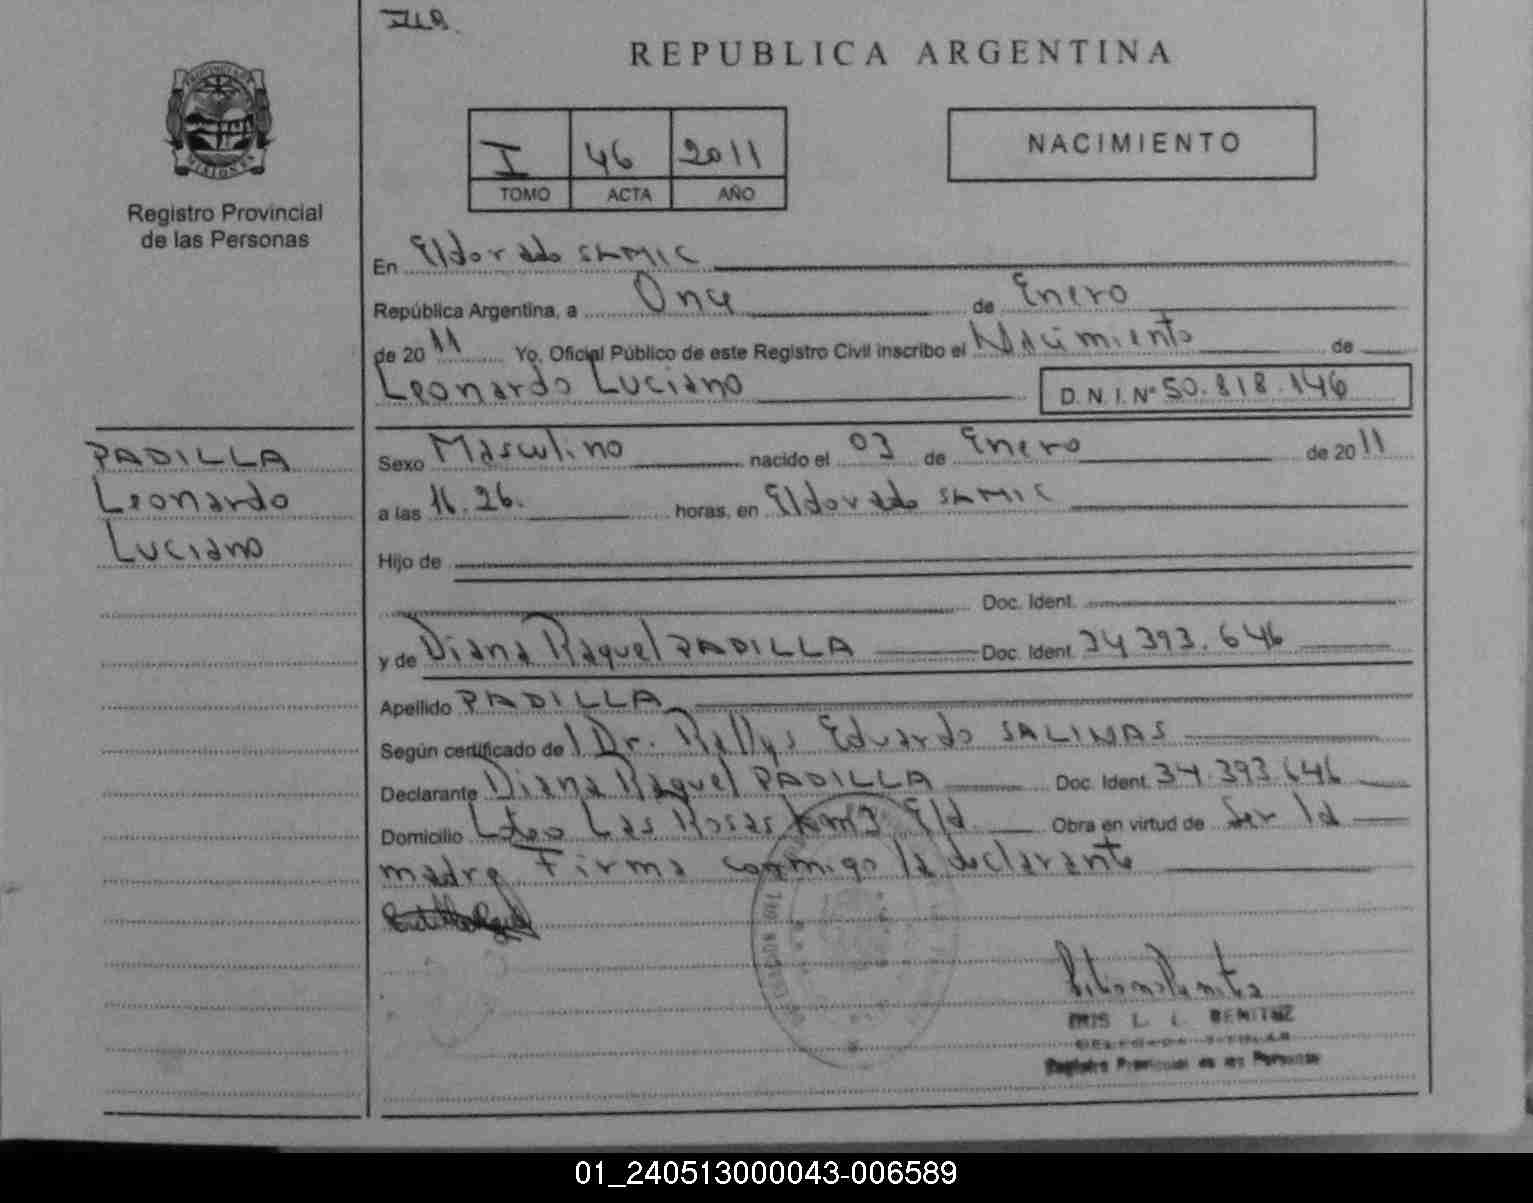 REPUBLICA ARGENTINA
I 46 2011
TOMO ACTA AÑO
NACIMIENTO
Registro Provincial
de las Personas
En Eldorado SAMIC
República Argentina, a Once de Enero
de 2011 Yo, Oficial Público de este Registro Civil inscribo el Nacimiento de
Leonardo Luciano D.N.I. Nº 50.818.146
PADILLA
Leonardo
Luciano
Sexo Masculino nacido el 03 de Enero de 2011
a las 16.26. horas, en Eldorado SAMIC
Hijo de
Doc. Ident.
y de Diana Raquel PADILLA Doc. Ident. 34 393.646
Apellido PADILLA
Según certificado de Dr. Rallys Eduardo SALINAS
Declarante Diana Raquel PADILLA Doc. Ident. 34.393.646
Domicilio Las Rosas km3 Eld. Obra en virtud de Ser la
madre Firma conmigo la declarante
L. BENITEZ
Registro Provincial de las Personas
01_240513000043-006589